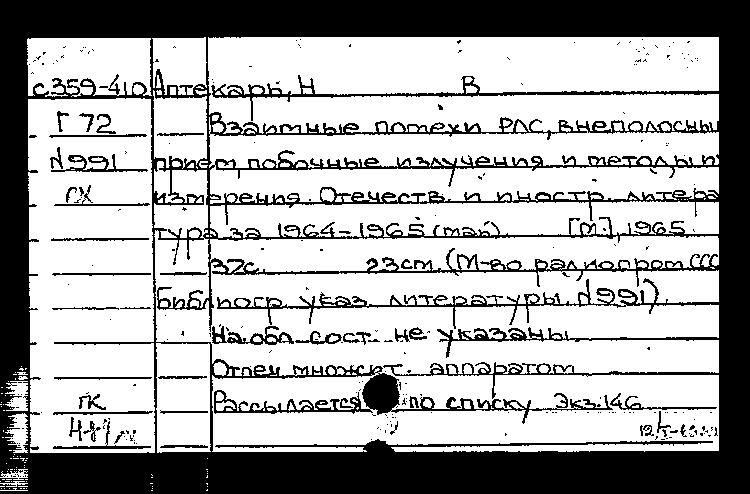 с359-410 Аптекарь, Н В
Г 72 Взаимные помехи РЛС, внеполосны
№991 прием, побочные излучения и методы и
ГХ измерения. Отечеств. и иностр. литера
тура за 1964-1965 (май). [М.], 1965.
32с. 23см. (М-во радиопром ССС
Библиогр. указ. литературы. №991)
На обл. сост. не указаны.
Отпеч. множит. аппаратом
ГК Рассылается по списку Экз.146